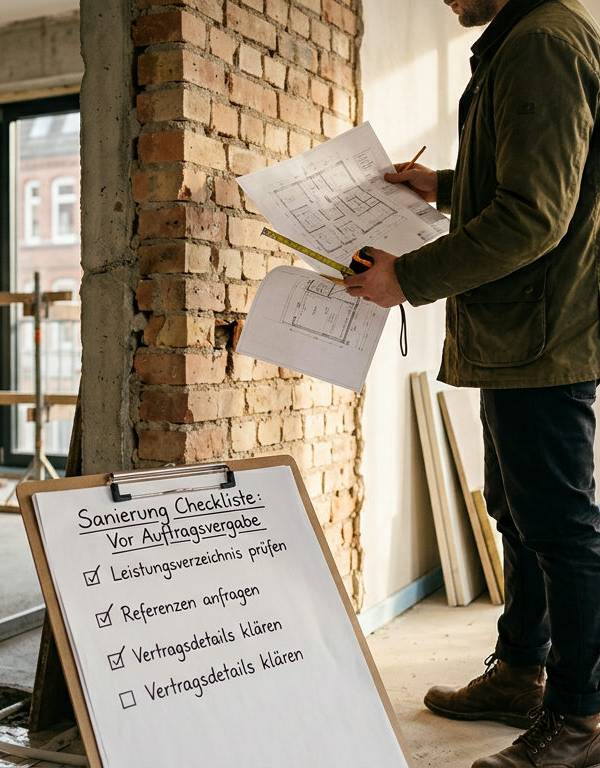 Sanierung Checkliste:
Vor Auftragsvergabe
Leistungsverzeichnis prüfen
Referenzen anfragen
Vertragsdetails klären
Vertragsdetails klären